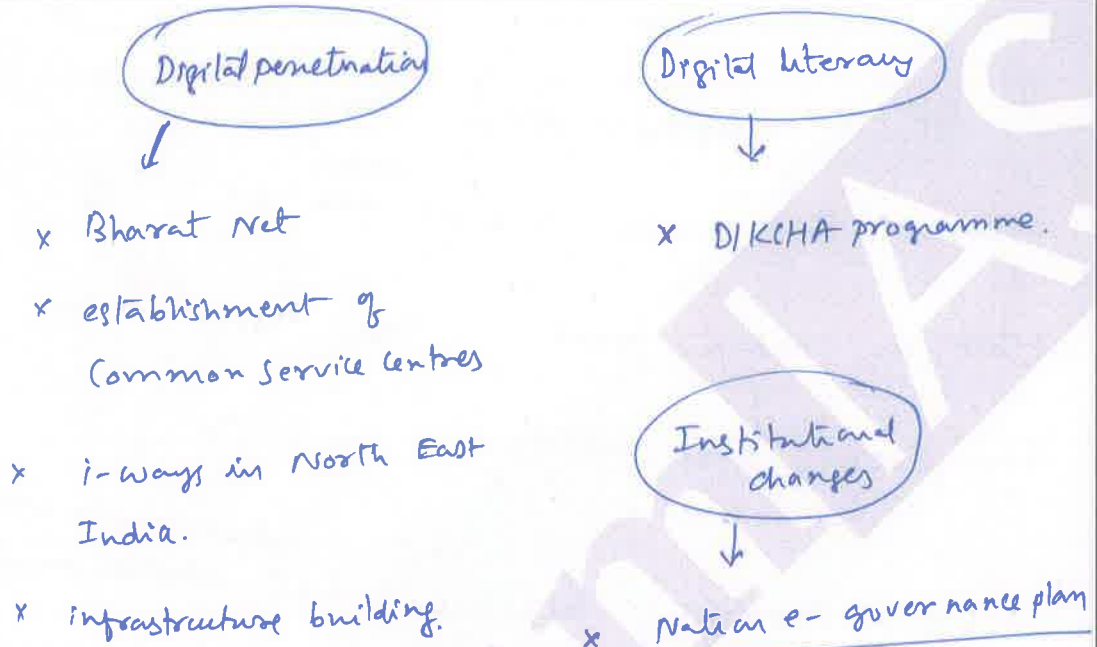 Digital penetration
x Bharat Net
x establishment of
Common Service Centres
x i-ways in North East
India.
x infrastructure building.
Digital literacy
x DIKCHA programme.
Institutional
changes
x Nation e-governance plan